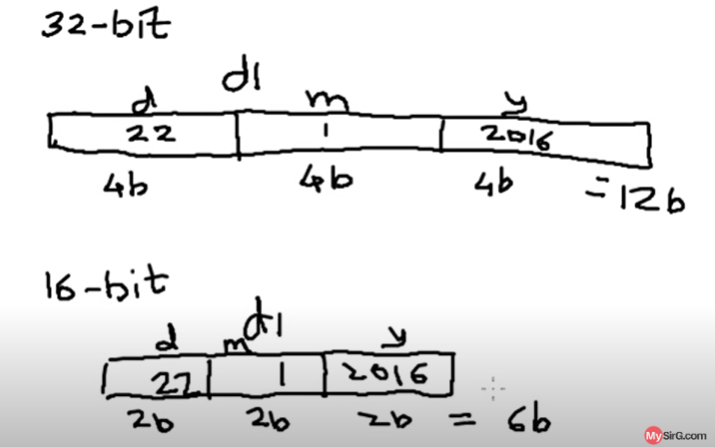 32-bit
d1
d m y
22 1 2016
4b 4b 4b = 12b
16-bit
d1
d m y
22 1 2016
2b 2b 2b = 6b
MySirG.com